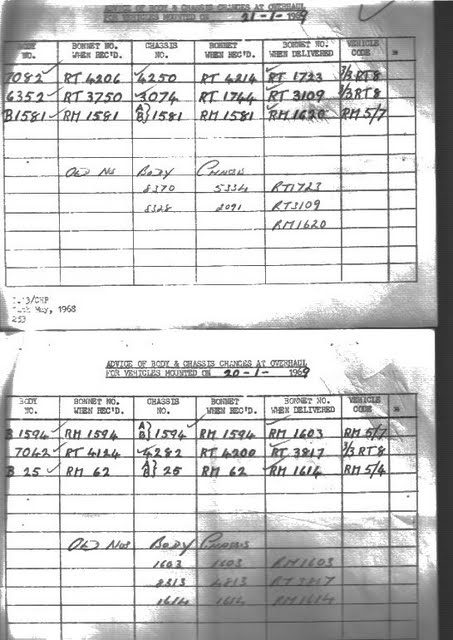 ADVICE OF BODY & CHASSIS CHANGES AT OVERHAUL
FOR VEHICLES MOUNTED ON 21-1-1969
BODY NO. BONNET NO. WHEN REC'D. CHASSIS NO. BONNET WHEN REC'D. BONNET NO. WHEN DELIVERED VEHICLE CODE
7082 RT 4206 4250 RT 4214 RT 1723 2/3 RT 8
6352 RT 3750 3074 RT 1744 RT 3109 2/3 RT 8
B1581 RM 1581 A B} 1581 RM 1581 RM 1620 RM 5/7
OLD NOS BODY CHASSIS
8370 5334 RT1723
8328 2091 RT3109
RM1620
May, 1968
253
ADVICE OF BODY & CHASSIS CHANGES AT OVERHAUL
FOR VEHICLES MOUNTED ON 20-1-1969
BODY NO. BONNET NO. WHEN REC'D. CHASSIS NO. BONNET WHEN REC'D. BONNET NO. WHEN DELIVERED VEHICLE CODE
B 1594 RM 1594 A B} 1594 RM 1594 RM 1603 RM 5/7
7042 RT 4124 4282 RT 4200 RT 3817 2/3 RT 8
B 25 RM 62 A B} 25 RM 62 RM 1614 RM 5/4
OLD NOS BODY CHASSIS
1603 1603 RM1603
8313 4813 RT3817
1614 1614 RM1614